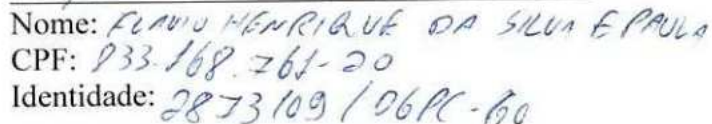 Nome: FLAVIO HENRIQUE DA SILVA E PAULA
CPF: 833.168.761-20
Identidade: 2873109 / DGPC-GO